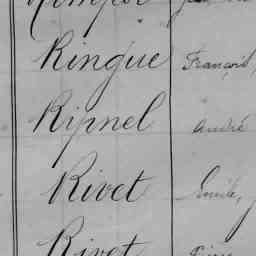 Ringue François,
Ripnel André
Rivet Emile,
Rivet